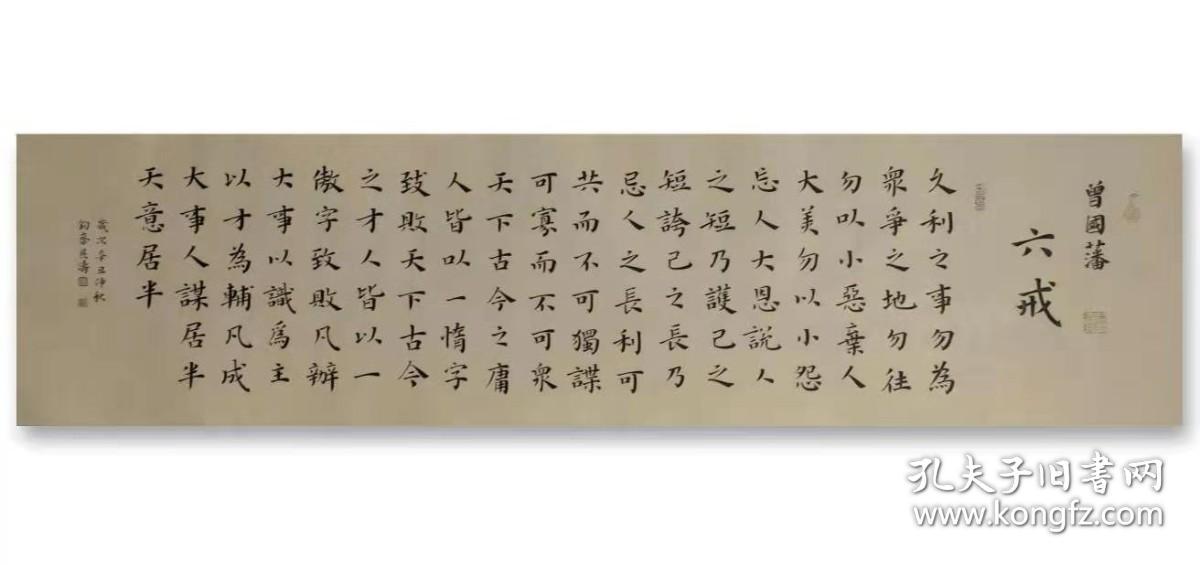 曾國藩
六戒
久利之事勿為
眾爭之地勿往
勿以小惡棄人
大美勿以小怨
忘人大恩說人
之短乃護己之
短誇己之長乃
忌人之長利可
共而不可獨謀
可寡而不可眾
天下古今之庸
人皆以一惰字
致敗天下古今
之才人皆以一
傲字致敗凡辦
大事以識為主
以才為輔凡成
大事人謀居半
天意居半
歲次辛丑仲秋
孔夫子旧書网
www.kongfz.com